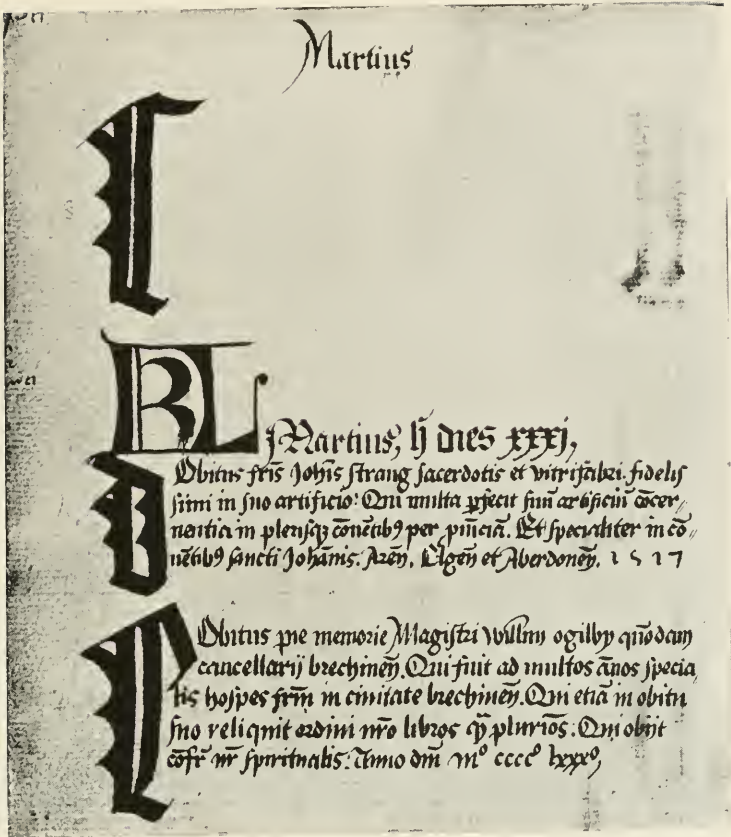 Martius
KL
Martius, hȝ dies xxxj,
Obitus fr̄is Joh̄is strang sacerdotis et vitrifabri. fidelis
simi in suo artificio: Qui multa ꝑfecit suū artificiū cōcer„
nentia in plerisqꝫ cōuētibꝰ per ꝓuīciā. Et specialiter in cō„
uētibꝰ sancti Johānis. Areñ. Elgeñ et Aberdoneñ. 1517
Obitus pie memorie Magistri willmi ogilby quōdam
cancellarij brechineñ. Qui fuit ad multos ānos specia
lis hospes fr̄m in ciuitate brechineñ. Qui etiā in obitu
suo reliquit ordini nr̄o libros plurīos. Qui obijt
cōfr̄ nr̄ spiritualis. Anno dm̄ mº ccccº lxxxº,